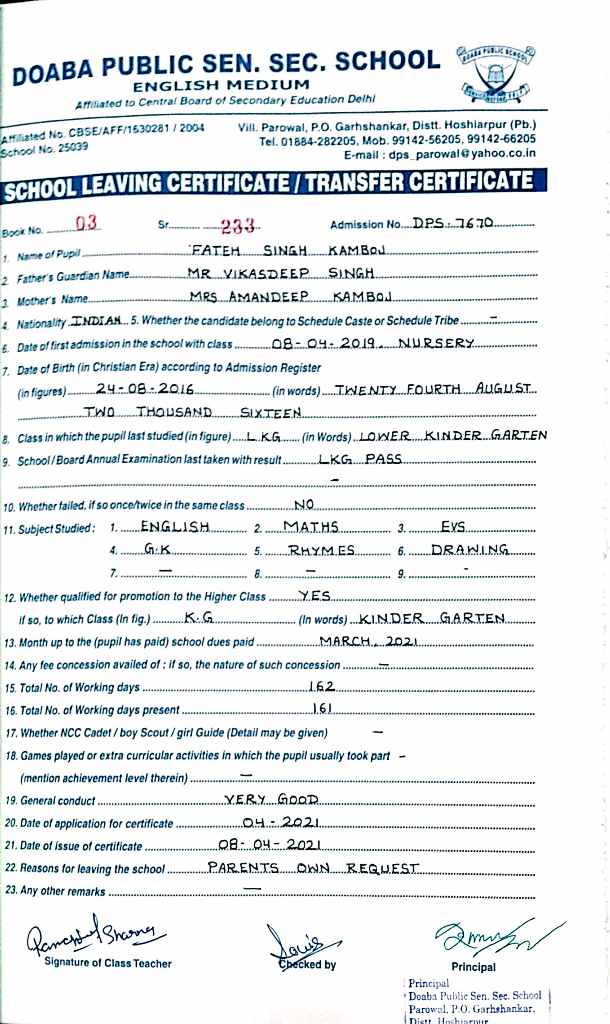 DOABA PUBLIC SCHOOL
DOABA PUBLIC SEN. SEC. SCHOOL
ENGLISH MEDIUM
Affiliated to Central Board of Secondary Education Delhi
Affiliated No. CBSE/AFF/1630281 / 2004
School No. 25039
Vill. Parowal, P.O. Garhshankar, Distt. Hoshiarpur (Pb.)
Tel. 01884-282205, Mob. 99142-56205, 99142-66205
E-mail : dps_parowal@yahoo.co.in
SCHOOL LEAVING CERTIFICATE / TRANSFER CERTIFICATE
Book No. 03 Sr. 233 Admission No. DPS-7670
1. Name of Pupil FATEH SINGH KAMBOJ
2. Father's Guardian Name MR VIKASDEEP SINGH
3. Mother's Name MRS AMANDEEP KAMBOJ
4. Nationality INDIAN 5. Whether the candidate belong to Schedule Caste or Schedule Tribe –
6. Date of first admission in the school with class 08-04-2019, NURSERY
7. Date of Birth (in Christian Era) according to Admission Register
(in figures) 24-08-2016 (in words) TWENTY FOURTH AUGUST
TWO THOUSAND SIXTEEN
8. Class in which the pupil last studied (in figure) LKG (in Words) LOWER KINDER GARTEN
9. School / Board Annual Examination last taken with result LKG PASS
–
10. Whether failed, if so once/twice in the same class NO
11. Subject Studied : 1. ENGLISH 2. MATHS 3. EVS
4. G.K 5. RHYMES 6. DRAWING
7. – 8. – 9. -
12. Whether qualified for promotion to the Higher Class YES
if so, to which Class (In fig.) K.G (In words) KINDER GARTEN
13. Month up to the (pupil has paid) school dues paid MARCH, 2021
14. Any fee concession availed of : if so, the nature of such concession –
15. Total No. of Working days 162
16. Total No. of Working days present 161
17. Whether NCC Cadet / boy Scout / girl Guide (Detail may be given) –
18. Games played or extra curricular activities in which the pupil usually took part –
(mention achievement level therein) –
19. General conduct VERY GOOD
20. Date of application for certificate 04-2021
21. Date of issue of certificate 08-04-2021
22. Reasons for leaving the school PARENTS OWN REQUEST
23. Any other remarks –
Signature of Class Teacher Checked by Principal
Principal
Doaba Public Sen. Sec. School
Parowal, P.O. Garhshankar,
Distt. Hoshiarpur